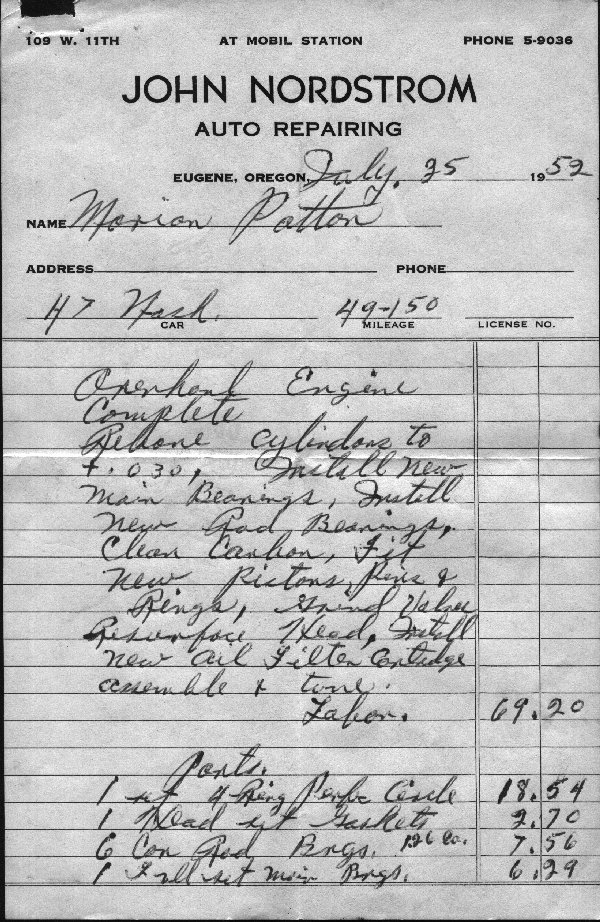 109 W. 11TH AT MOBIL STATION PHONE 5-9036
JOHN NORDSTROM
AUTO REPAIRING
EUGENE, OREGON, July. 25 1952
NAME Marion Patton
ADDRESS PHONE
47 Nash. 49-150
CAR MILEAGE LICENSE NO.
Overhaul Engine
Complete
Rebore cylinders to
+.030, Install New
Main Bearings, Install
New Rod Bearings,
Clean Carbon, Fit
New Pistons, Pins &
Rings, Grind Valves
Resurface Head, Install
New Oil Filter Cartridge
assemble & tune.
Labor. 69.20
Parts.
1 set 4-Ring Perfc Circle 18.54
1 Head set Gaskets 2.70
6 Con Rod Brgs. 1.26 ea. 7.56
1 Full set Main Brgs. 6.29